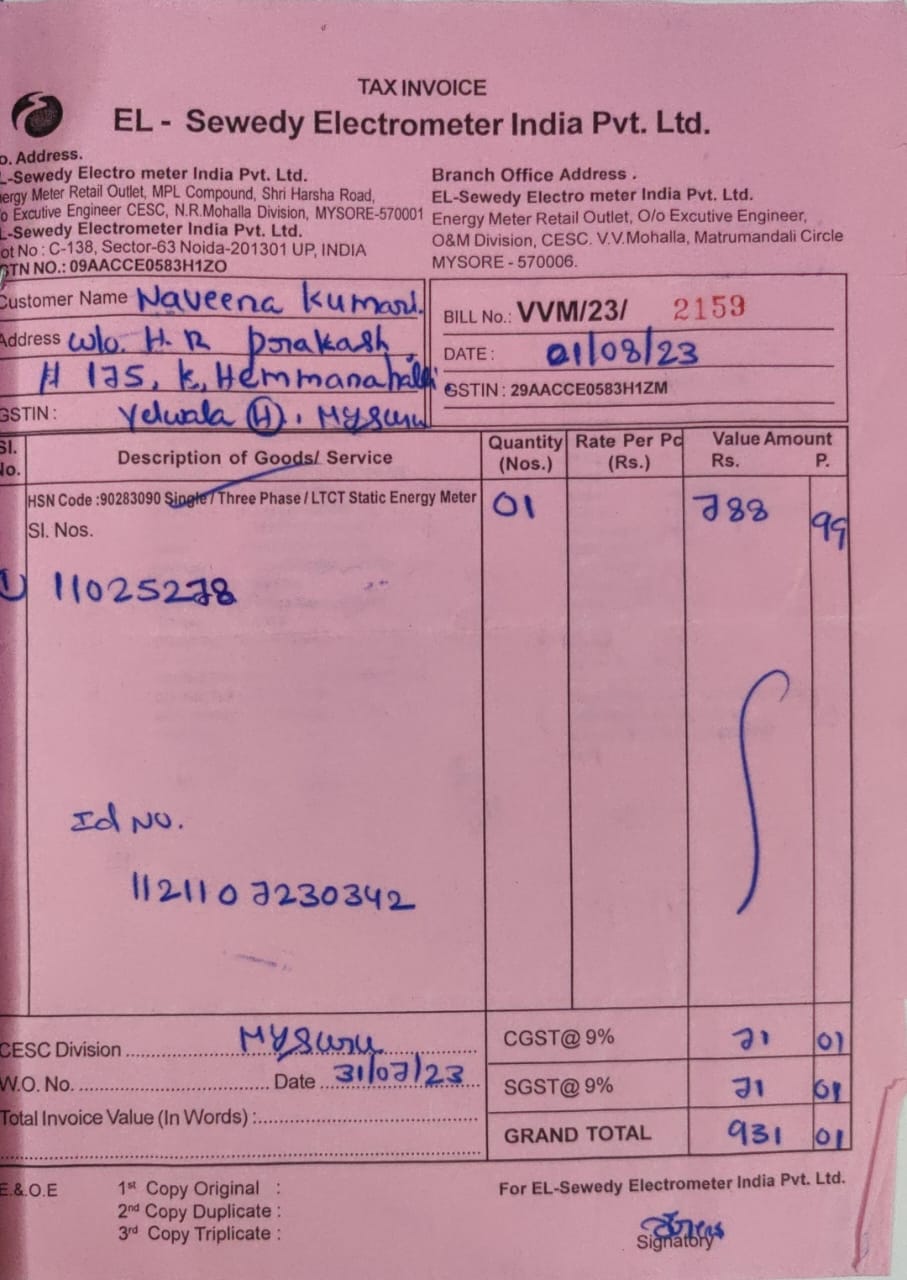 TAX INVOICE
EL - Sewedy Electrometer India Pvt. Ltd.
o. Address.
L-Sewedy Electro meter India Pvt. Ltd.
nergy Meter Retail Outlet, MPL Compound, Shri Harsha Road,
o Excutive Engineer CESC, N.R.Mohalla Division, MYSORE-570001
L-Sewedy Electrometer India Pvt. Ltd.
ot No : C-138, Sector-63 Noida-201301 UP, INDIA
GTN NO.: 09AACCE0583H1ZO
Branch Office Address .
EL-Sewedy Electro meter India Pvt. Ltd.
Energy Meter Retail Outlet, O/o Excutive Engineer,
O&M Division, CESC. V.V.Mohalla, Matrumandali Circle
MYSORE - 570006.
Customer Name Naveena Kumari.
Address W/o. H. R Prakash,
# 175, K, Hemmanahalli
GSTIN : Yelwala (H). Mysuru
BILL No.: VVM/23/ 2159
DATE : 01/08/23
GSTIN : 29AACCE0583H1ZM
Sl. No. Description of Goods/ Service Quantity (Nos.) Rate Per Pc (Rs.) Value Amount Rs. P.
HSN Code :90283090 Single / Three Phase / LTCT Static Energy Meter 01 788 99
Sl. Nos.
1) 11025278
Id No.
1121107230342
CESC Division Mysuru
W.O. No. Date 31/07/23
Total Invoice Value (In Words) :
CGST@ 9% 71 01
SGST@ 9% 71 01
GRAND TOTAL 931 01
E.&.O.E
1st Copy Original :
2nd Copy Duplicate :
3rd Copy Triplicate :
For EL-Sewedy Electrometer India Pvt. Ltd.
Signatory